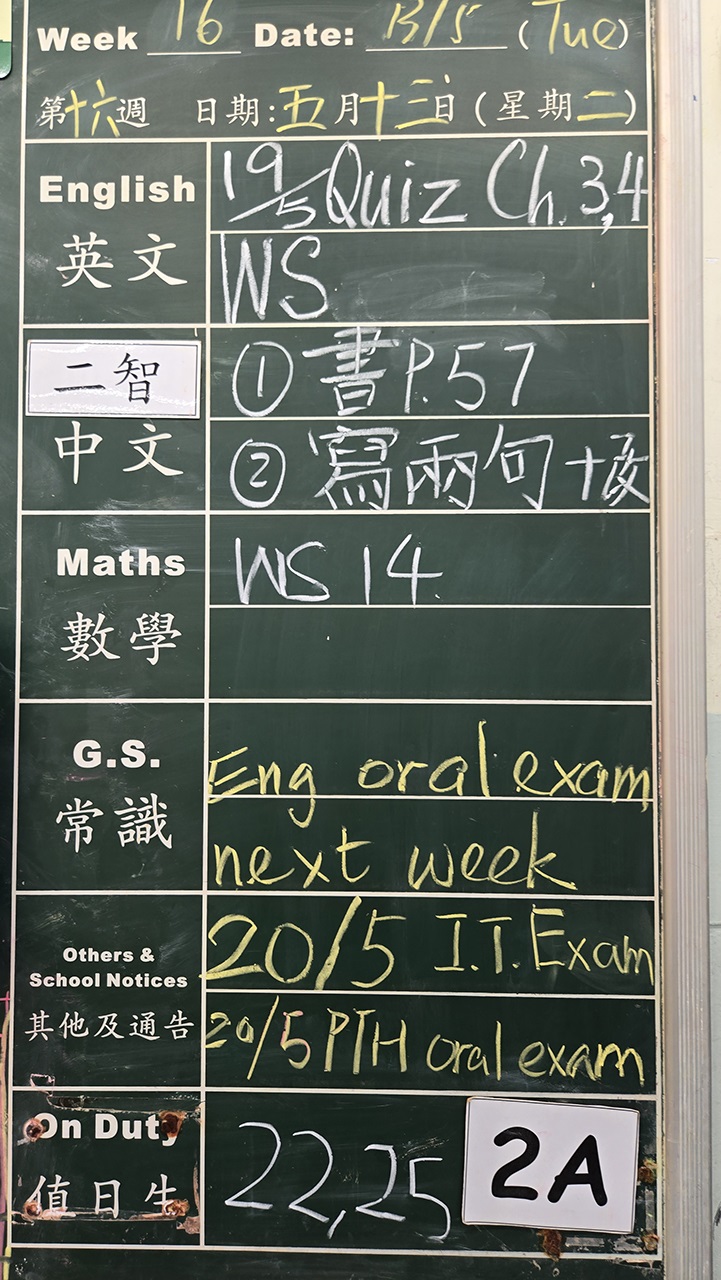 Week 16 Date: 13/5 (Tue)
第十六週 日期:五月十三日(星期二)
English
英文
19/5 Quiz Ch. 3,4
WS
二智
中文
① 書P.57
② 寫兩句
Maths
數學
WS 14
G.S.
常識
Eng oral exam
next week
Others &
School Notices
其他及通告
20/5 I.T. Exam
20/5 PTH oral exam
On Duty
值日生
22,25
2A